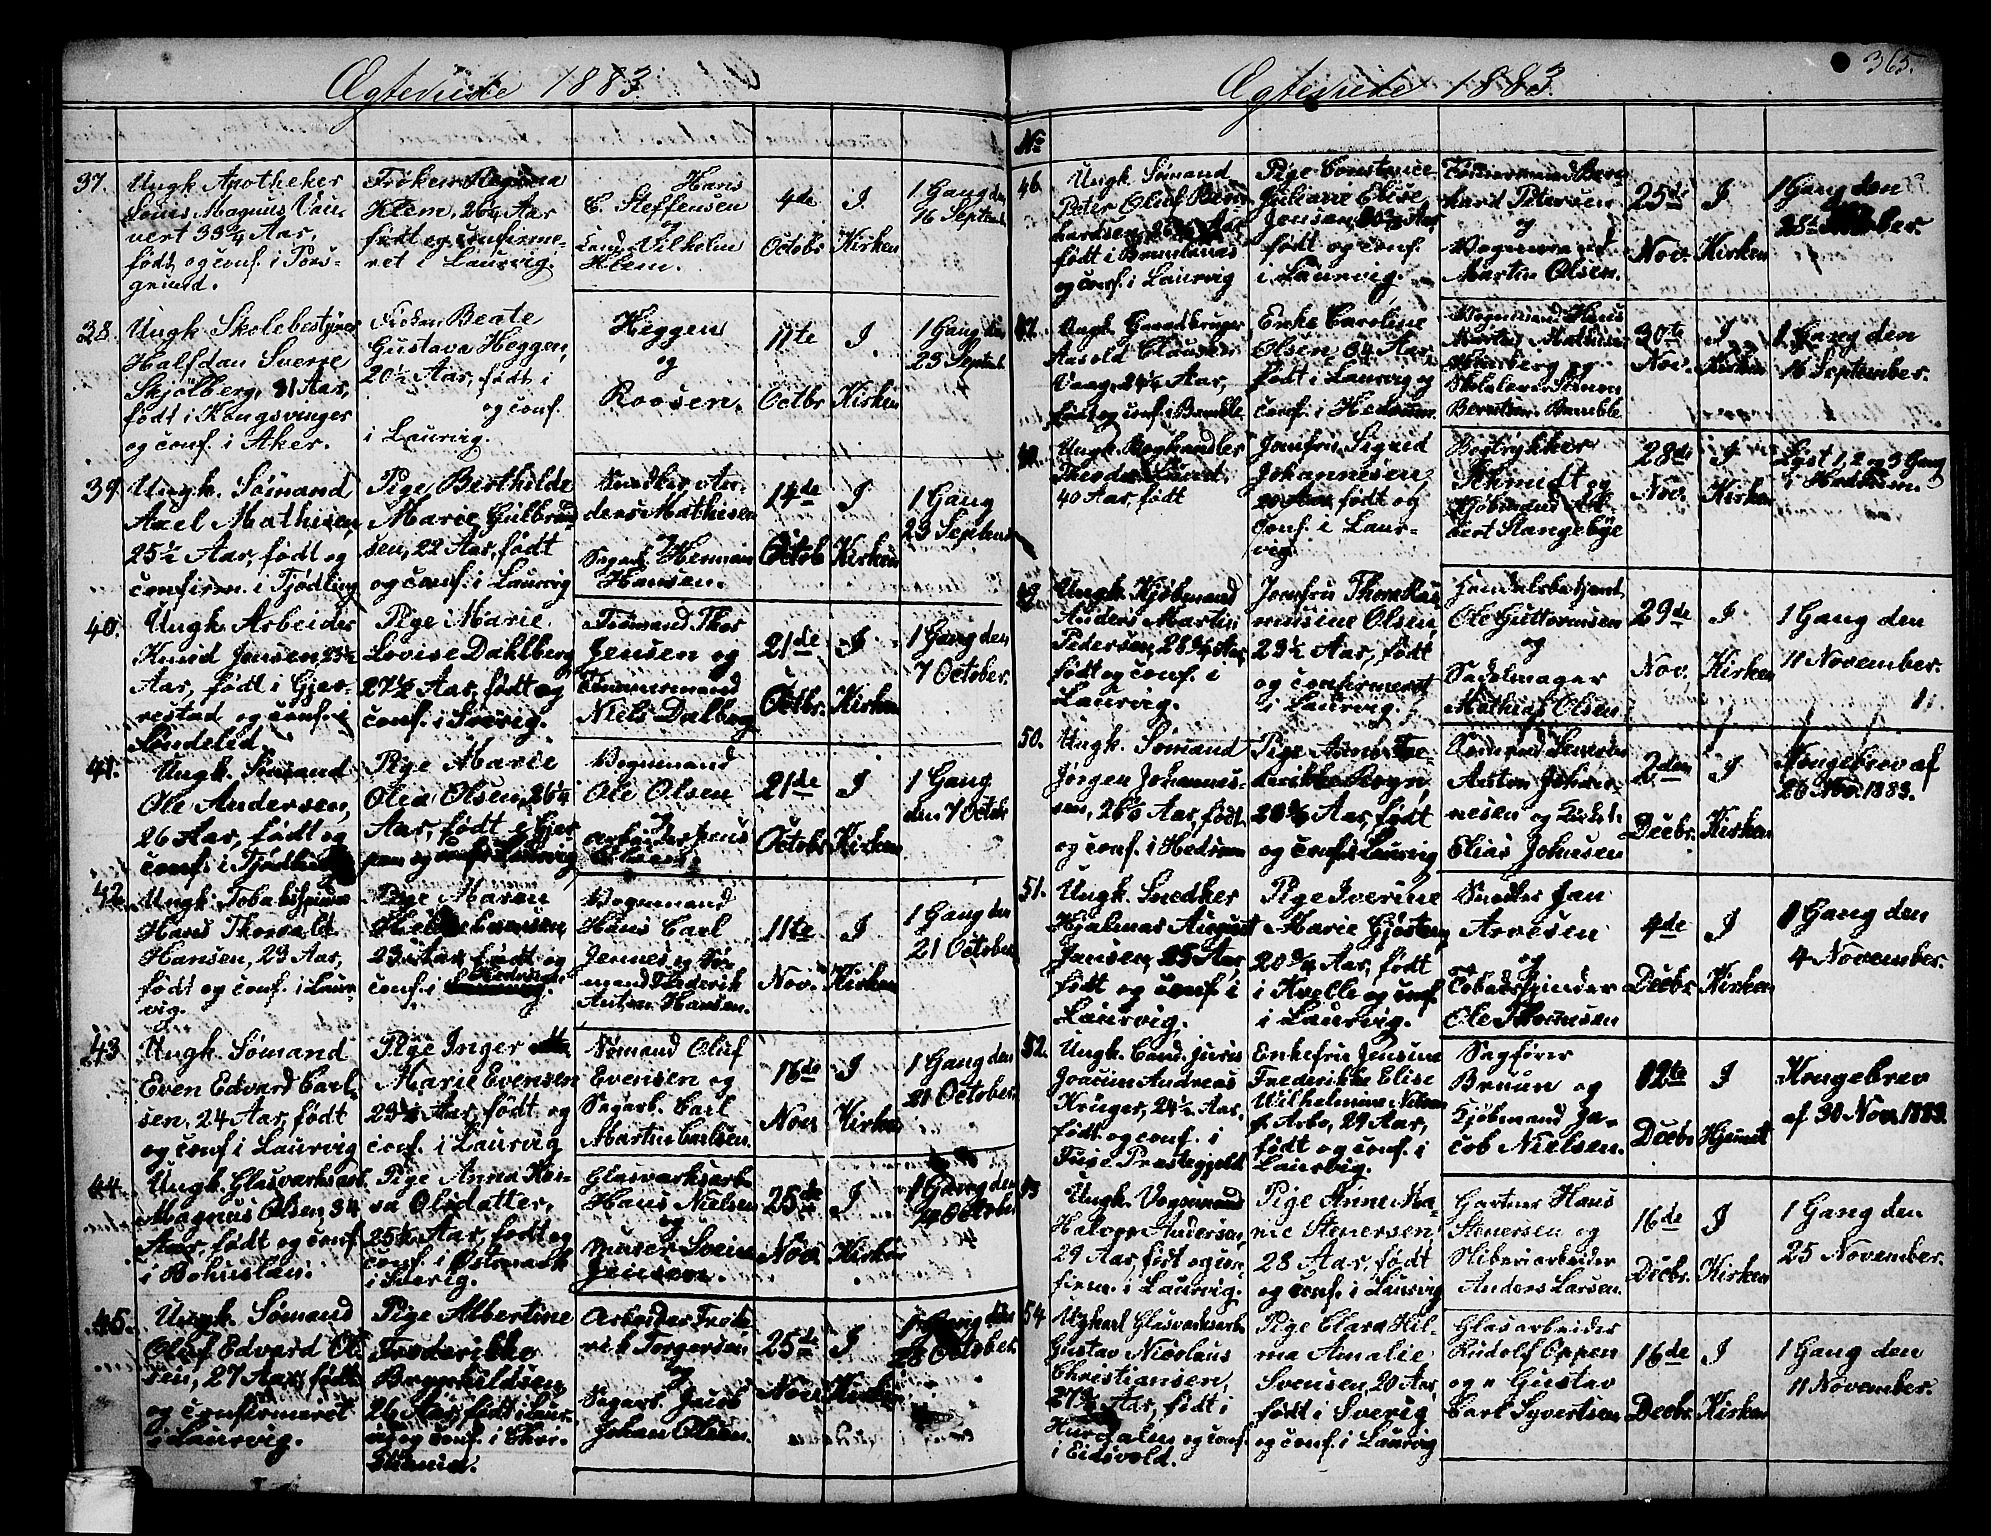 Ægteviede 1883.
37.
Ungk. Apotheker
Louis Magnus Vau-
vert 33¾ Aar,
født og conf. i Pors-
grund.
Frøken Regina
Klem, 26¼ Aar
født og confirme-
ret i Laurvig.
Hans
C. Steffensen
og
Vilhelm
Klem.
4de
Octobr
I
Kirken
1 Gang den
16 Septemb
38.
Ungk. Skolebestyrer
Halfdan Sverre
Skjølberg, 31 Aar,
født i Kongsvinger
og conf. i Aker.
Frøken Beate
Gustava Heggen,
20½ Aar, født i
og conf.
i Laurvig.
Heggen
og
Roosen.
11te
Octbr
I.
Kirken
1 Gang den
23 Septemb
39
Ungk. Sømand
Axel Mathisen,
25½ Aar, født og
confirm. i Tjødling
Pige Berthilde
Marie Gulbrand
sen, 22 Aar, født
og conf. i Laurvig
Snedker An-
ders Mathisen
og
Sagarb. Herman
Hansen.
14de
Octob
I
Kirken
1 Gang
23 Septemb
40.
Ungk. Arbeider
Knud Jensen, 23½
Aar, født i Gjer-
restad og conf. i
Søndeled.
Pige Marie
Lovise Dahlberg
27½ Aar, født og
conf. i Sverig.
Tømmermand Thor
Jensen og
Tømmermand
Niels Dalberg
21de
Octbr.
I
Kirken
1 Gang den
7 October.
41.
Ungk. Sømand
Ole Andersen,
26 Aar, født og
conf. i Tjødling
Pige Marie
Olea Olsen, 26¼
Aar, født i Gjer
pen og conf. i Laurvig
Vognmand
Ole Olsen
og
Arbeider Jens
21de
Octobr
I
Kirken
1 Gang
den 7 Octobr
42.
Ungk. Tobakspinder
Hans Thorvald
Hansen, 23 Aar,
født og conf. i Laur-
vig.
Pige Maren
23 Aar, født og
conf. i Hedrum
Vognmand
Hans Carl
Jennes og Sø-
mand Frederik
Anton Hansen.
11te
Nov.
I
Kirken
1 Gang den
21 October
43
Ungk. Sømand
Even Edvard Carl-
sen, 24 Aar, født
og conf i Laurvig
Pige Inger
Marie Evensen
23½ Aar, født og
conf. i Laurvig
Sømand Oluf
Evensen og
Sagarb. Carl
Martin Carlsen.
16de
Nov
I
Kirken
1 Gang den
21 October.
44.
Ungk. Glasværksarb.
Magnus Olsen 34
Aar, født og conf.
i Bohuslän.
Pige Anna Kai-
sa Olsdatter,
25¼ Aar, født og
conf. i Østmark
i Sverig.
Glasværksarb.
Hans Nielsen
og
Murer Svein
Jensen.
25de
Nov.
I
Kirken
1 Gang den
October
45.
Ungk. Sømand
Oluf Edvard Ol-
sen, 27 Aar, født
og confirmeret
i Laurvig.
Pige Albertine
Frederikke
Brynhildsen,
26 Aar, født i Laur-
vig og conf. i Chri-
stiania.
Arbeider Frede-
rik Torgersen
og
Sagarb. Jacob
Johan Olsen.
25de
Nov
I
Kirken
1 Gang den
28 October.
Ægteviede 1883.
365.
No
46
Ungk. Sømand
Peter Oluf Bern-
hardsen, Aar
født i Brunlanæs
og conf. i Laurvig
Pige Constance
Juliane Elise
Jensen, Aar,
født og conf.
i Laurvig
Tømmermand Bern-
hard Petersen
og
Vognmand
Martin Olsen.
25de
Nov.
I
Kirken
1 Gang den
47.
Ungk. Gaardbruger
Aasold Clausen
Vaag, 24¼ Aar,
født og conf. i Bamble
Enke Caroline
Olsen, 34 Aar,
født i Laurvig og
conf. i Hedrum.
Vognmand Hans
og
Skolelærer Simon
Berntsen. Bamble
30te
Nov.
I
Kirken
1 Gang den
16 September.
48.
Ungk. Boghandler
40 Aar, født
Jomfru Sigrid
Johannesen,
20 Aar, født og
conf. i Laur-
vig.
Bogtrykker
Schmidt og
Kjøbmand Al-
bert Stangebye
28de
Nov.
I
Kirken
Lyst 1, 2 og 3 Gang
i
49.
Ungk. Kjøbmand
Anders Martin
Pedersen, 28¾ Aar,
født og conf. i
Laurvig.
Jomfru Thora Ras-
musine Olsen,
23½ Aar, født
og confirmeret
i Laurvig.
Handelsbetjent
Ole Guttormsen
og
Sadelmager
Mathias Olsen
29de
Nov.
I
Kirken
1 Gang den
11 November.
50.
Ungk. Sømand
Jørgen Johannes-
sen, 26½ Aar, født
og conf. i Hedrum
Pige Anne Fre-
derikke Bogn,
20¾ Aar, født
og conf. i Laurvig
Sømand Severin
Anton Johan-
nesen og
Elias Johnsen
2den
Decbr.
I
Kirken
Kongebrev af
26 Nov. 1883.
51.
Ungk. Snedker
Hjalmar August
Jansen, 25 Aar,
født og conf. i
Laurvig.
Pige Iverine
Marie Gjøstein,
20¾ Aar, født
i Kvelle og conf.
i Laurvig.
Snedker Jan
Arvesen
og
Tobakspinder
Ole Thomesen
4de
Decbr
I
Kirken
1 Gang den
4 November.
52.
Ungk. Cand. juris
Joacim Andreas
Krüger, 24½ Aar,
født og conf. i
Fuse Præstegjeld
Enkefru Jensine
Frederikke Elise
Wilhelmine Nielsen
f. Arbo, 29 Aar,
født og conf. i
Laurvig.
Sagfører
Bruun og
Kjøbmand Ja-
cob Nielsen.
12te
Decbr
I
Hjemmet
Kongebrev
af 30 Nov. 1883.
53
Ungk. Vognmand
Halvor Andersen,
29 Aar, født og con-
firm. i Laurvig.
Pige Anne Ma-
rie Stenersen
28 Aar, født
og conf. i Laurvig
Gartner Hans
Stenersen og
Sliberiarbeider
Anders Larsen.
16de
Decbr.
I
Kirken
1 Gang den
25 November.
54
Ungkarl Glasværksarb.
Gustav Nicolaus
Christiansen,
27¾ Aar, født i
Hurdalen og conf.
i Eidsvold.
Pige Clara Hil-
ma Amalie
Svensen, 20 Aar,
født i Sverig
og conf. i Laurvig
Glasarbeider
Rudolf Oppen
og Gustav
Carl Syvertsen
16de
Decbr.
I
Kirken
1 Gang den
11 November.